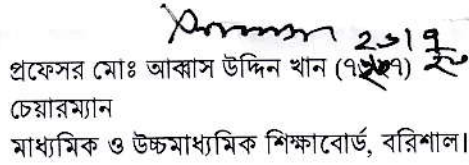 প্রফেসর মোঃ আব্বাস উদ্দিন খান
চেয়ারম্যান
মাধ্যমিক ও উচ্চমাধ্যমিক শিক্ষাবোর্ড, বরিশাল।